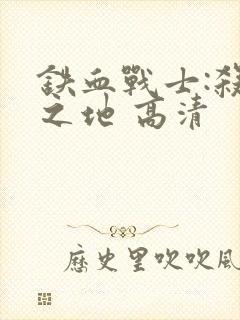 鉄血戰士:殺
之地 高清
歷史里吹吹風